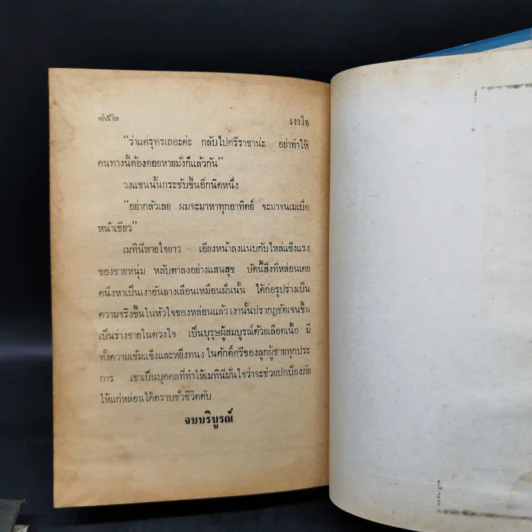 ๖๕๒ เงาใจ
“ว่าแต่รุทรเถอะค่ะ กลับไปศรีราชาน่ะ อย่าทำให้
คนทางนี้ต้องคอยหายมั่งก็แล้วกัน”
วงแขนนั้นกระชับขึ้นอีกนิดหนึ่ง
“อย่ากลัวเลย ผมจะมาหาทุกอาทิตย์ จะมาจนเมเบื่อ
หน้าเชียว”
เมทินีหายใจยาว เอียงหน้าลงแนบกับไหล่แข็งแรง
ของชายหนุ่ม หลับตาลงอย่างแสนสุข บัดนี้สิ่งที่หล่อนเคย
คนึงหาเป็นเงาอันลางเลือนเหมือนฝันนั้น ได้ก่อรูปร่างเป็น
ความจริงขึ้นในหัวใจของหล่อนแล้ว เงานั้นปรากฏชัดเจนขึ้น
เป็นร่างชายในดวงใจ เป็นบุรุษผู้สมบูรณ์ด้วยเลือดเนื้อ มี
ทั้งความเข้มแข็งและหยิ่งทนง ในศักดิ์ศรีของลูกผู้ชายทุกประ
การ เขาเป็นบุคคลที่ทำให้เมทินีมั่นใจว่าจะช่วยปกป้องภัย
ให้แก่หล่อนได้ตราบชั่วชีวิตดับ
จบบริบูรณ์